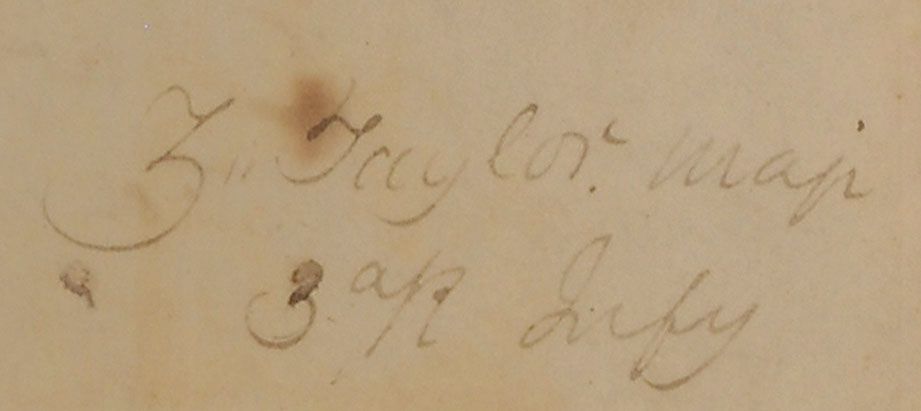 Z. Taylor. Maj
3. Infy